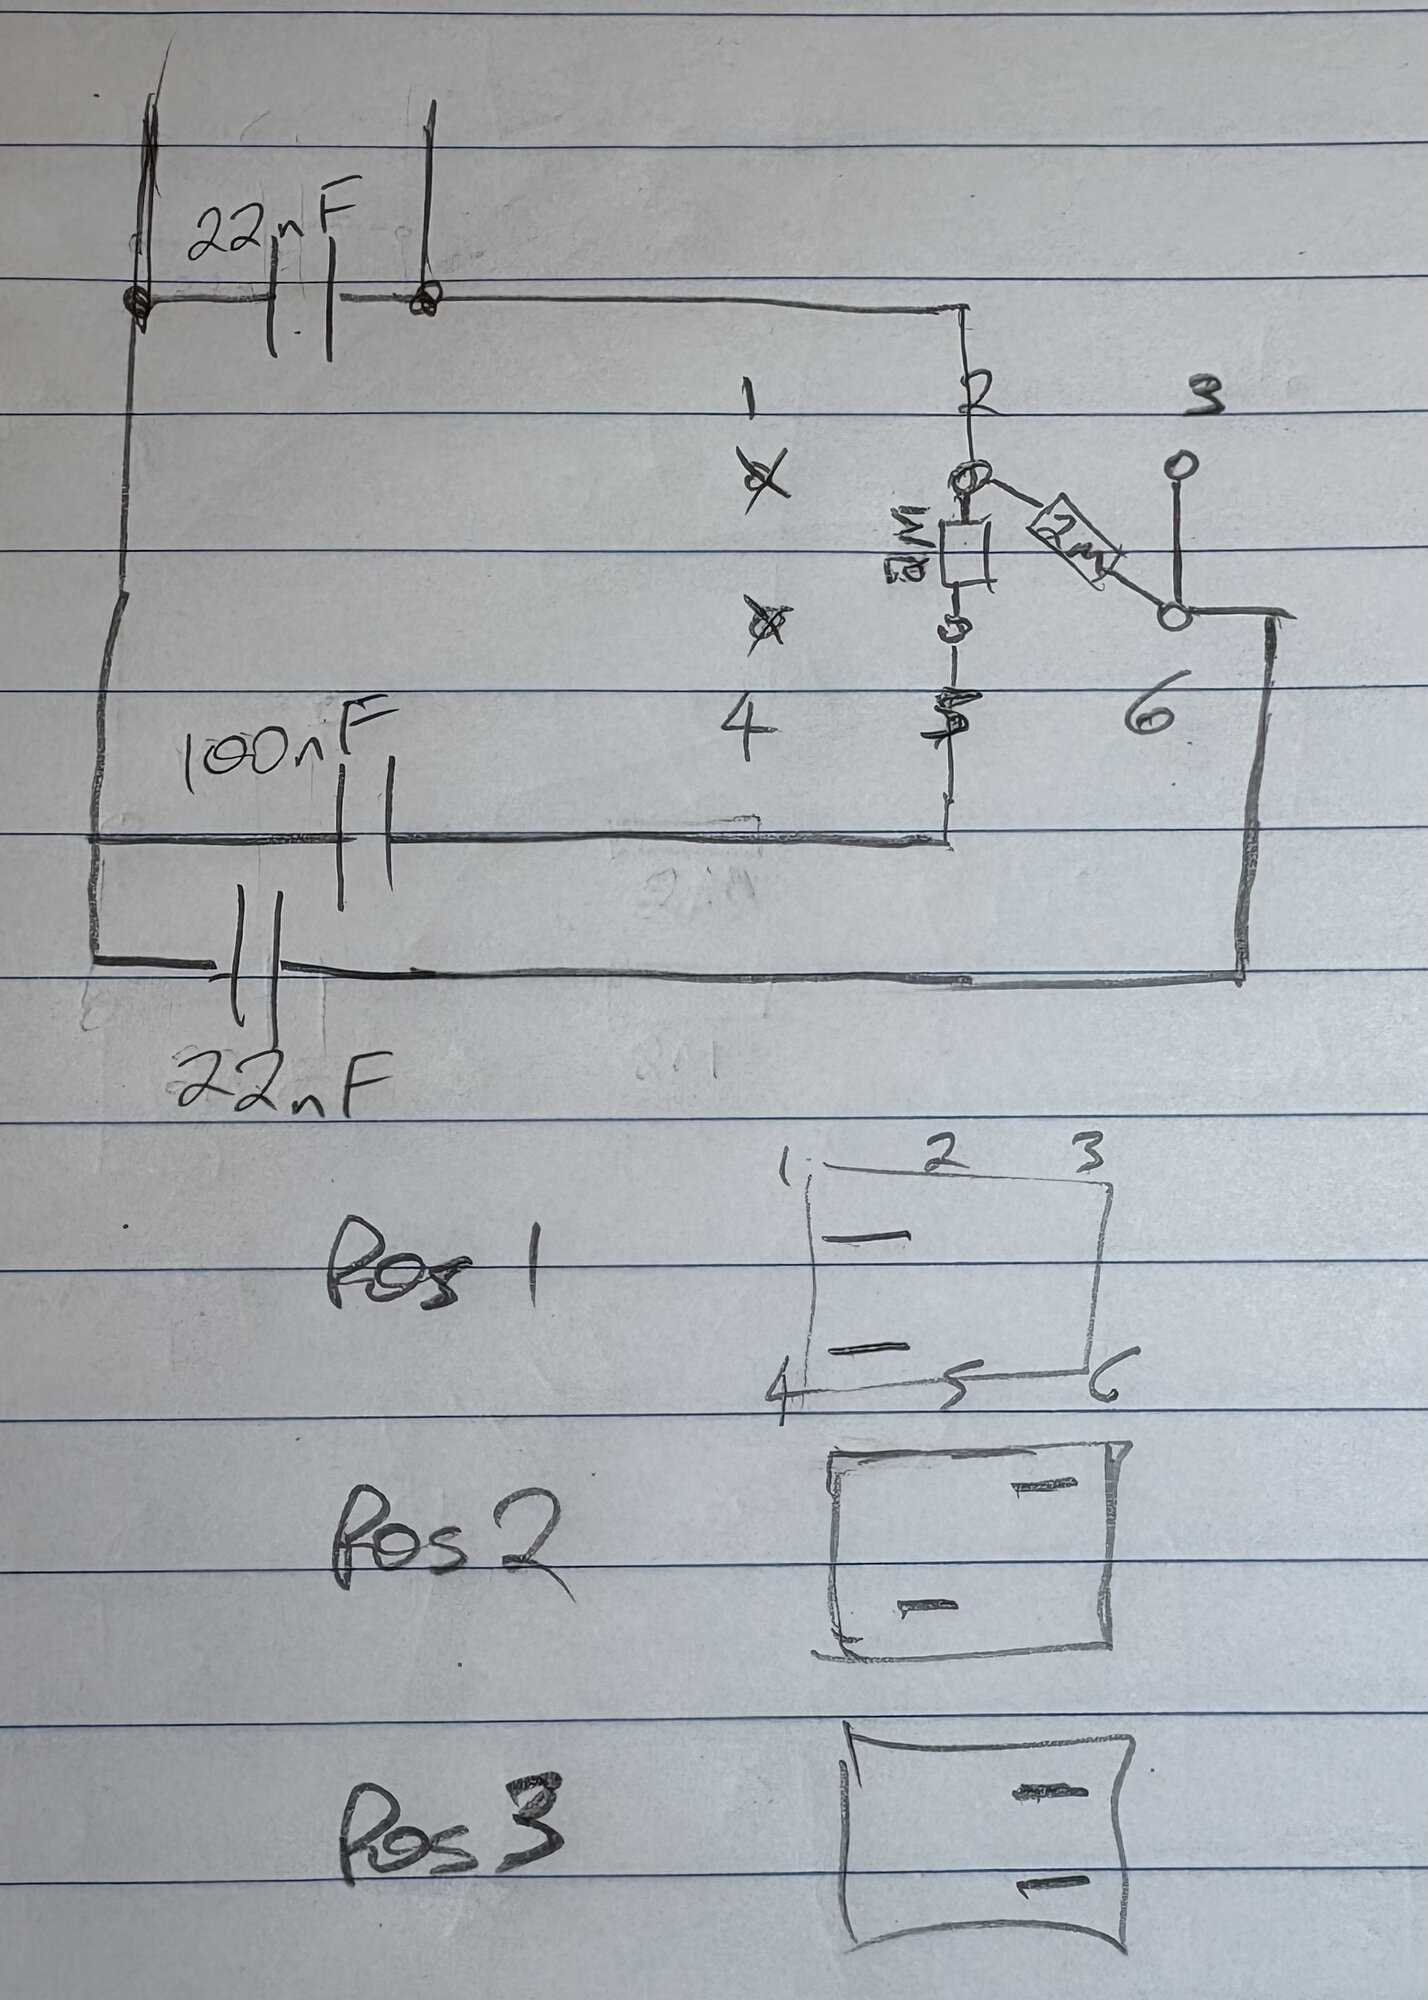 22nF
1 2 3
2M
2M
4 5 6
100nF
22nF
1 2 3
Pos 1
4 5 6
Pos 2
Pos 3